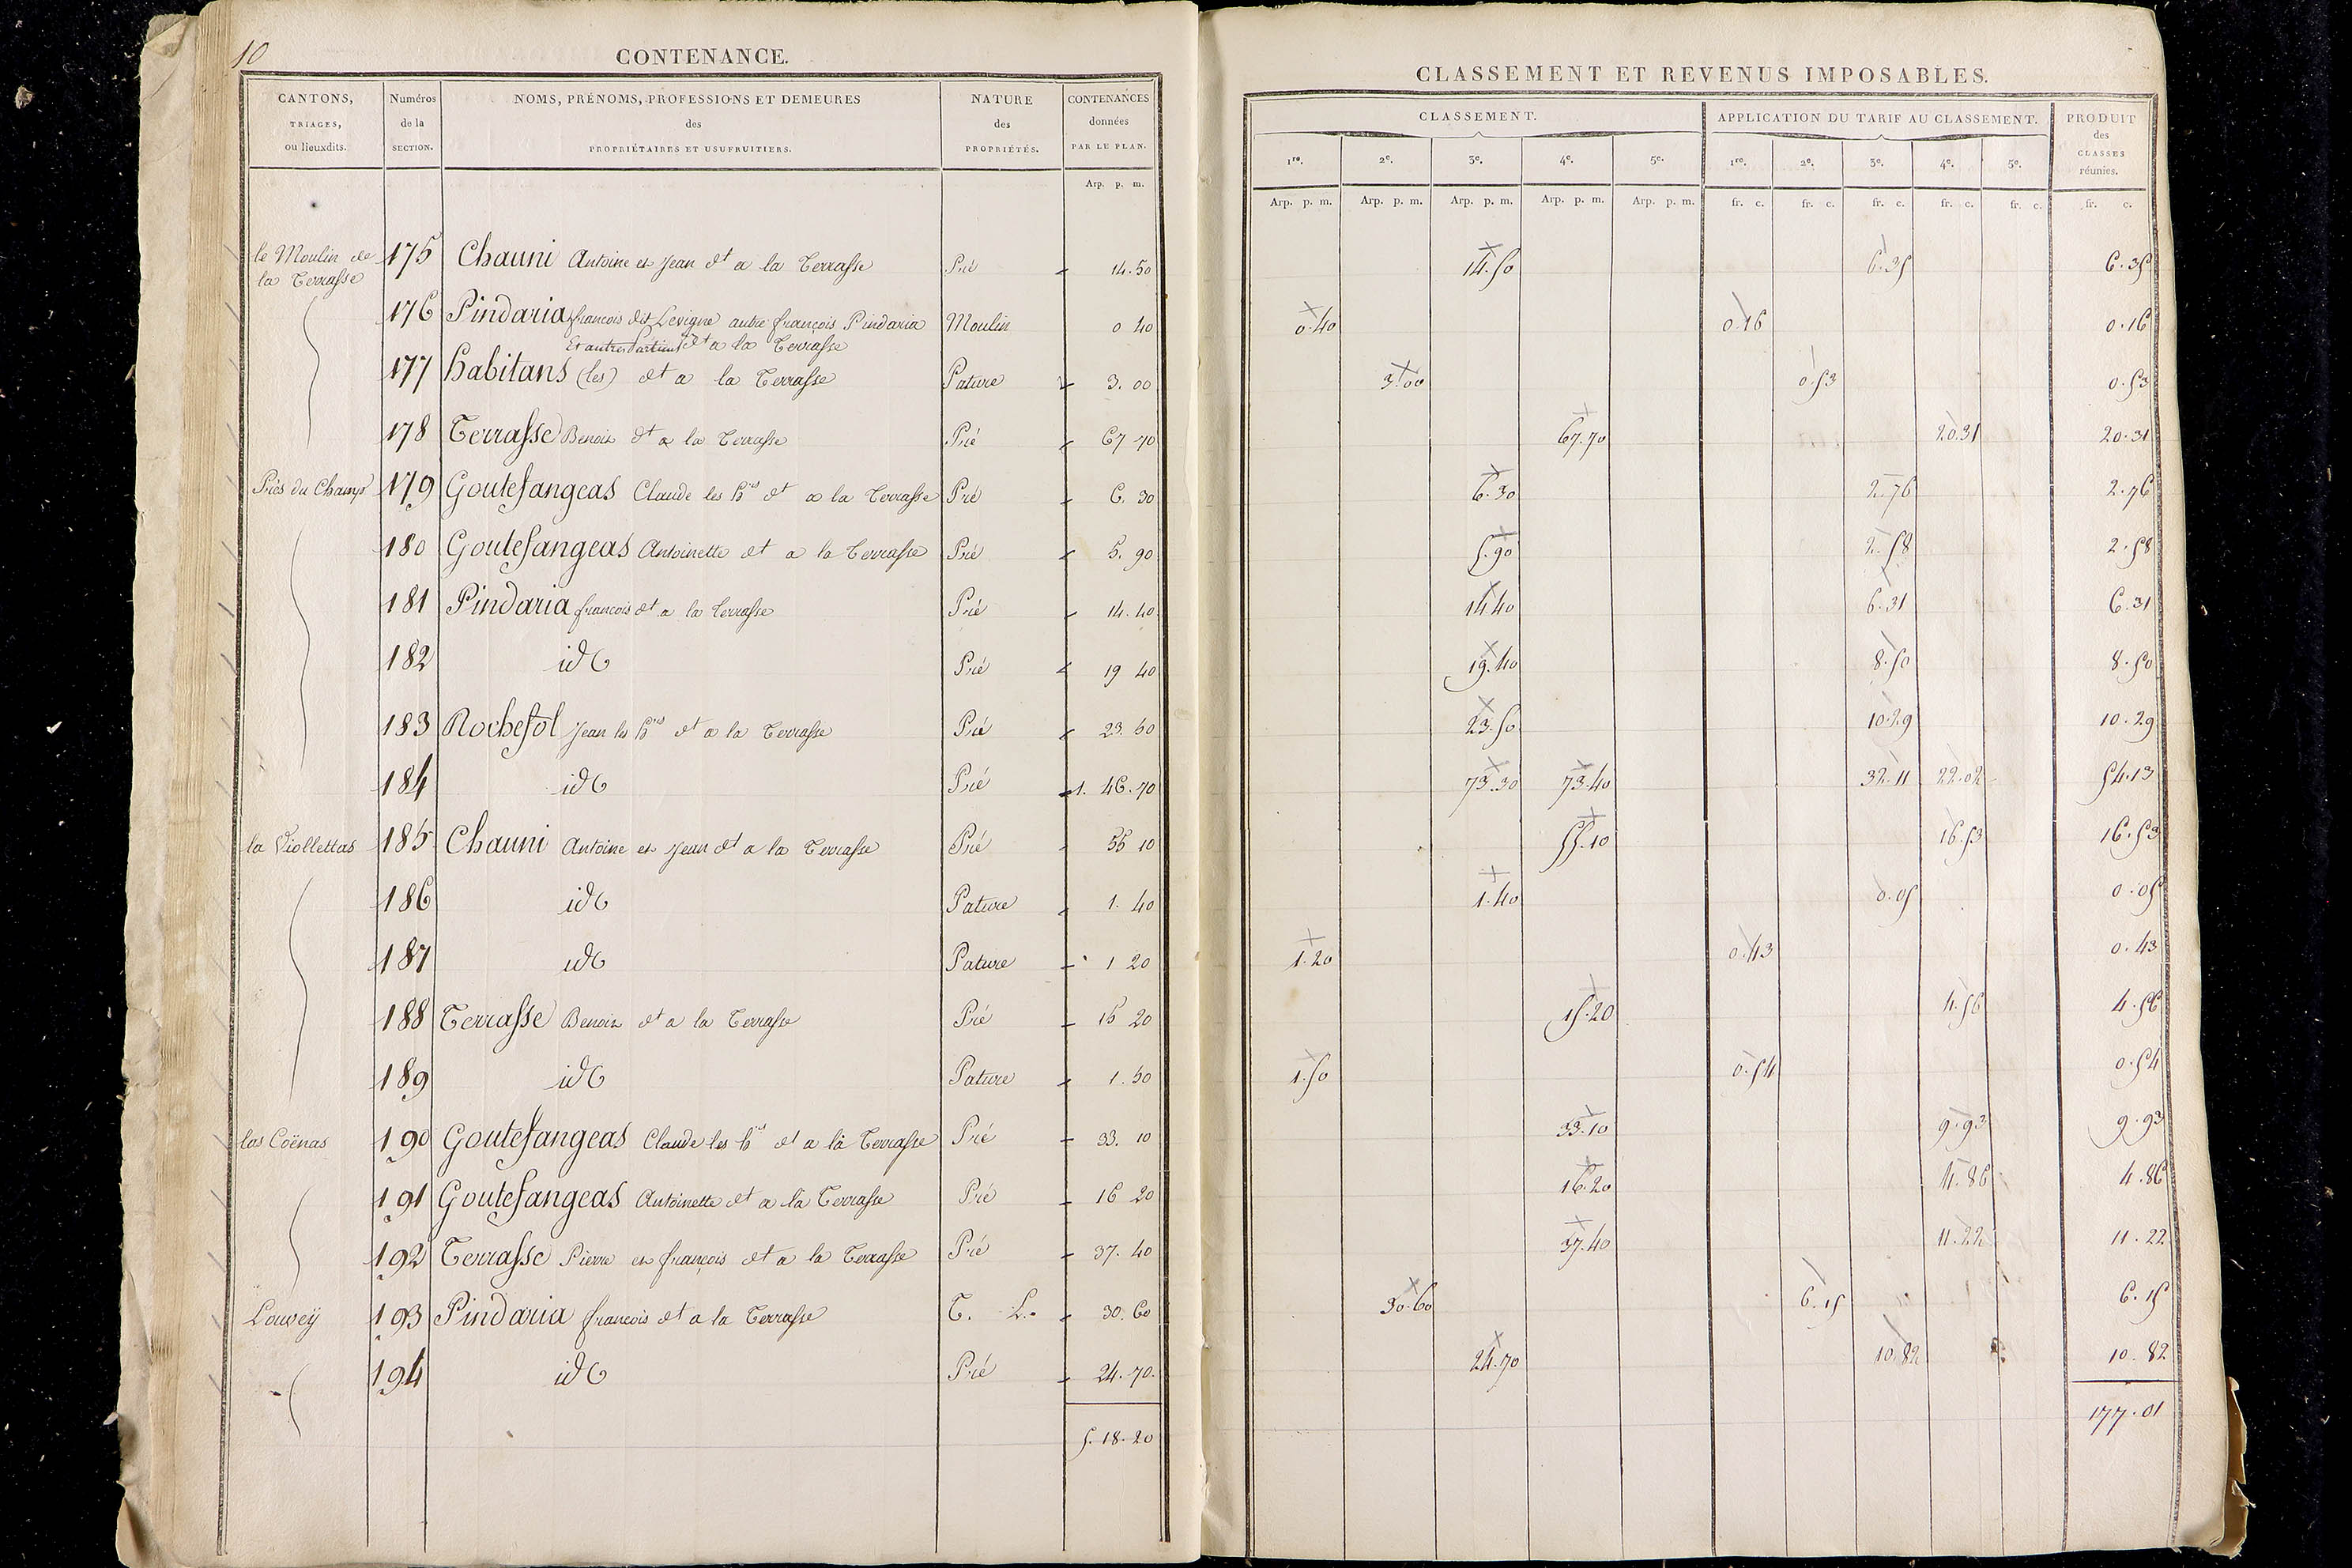 10
CONTENANCE.
CANTONS, TRIAGES, ou lieuxdits. | Numéros de la SECTION. | NOMS, PRÉNOMS, PROFESSIONS ET DEMEURES des PROPRIÉTAIRES ET USUFRUITIERS. | NATURE des PROPRIÉTÉS. | CONTENANCES données PAR LE PLAN.
Arp. p. m.
le Moulin de la Terrasse 175 Chauni Antoine et Jean dt a la Terrasse Pré 14.50
176 Pindaria francois dit Levigne autre françois Pindaria Moulin 0 40
Et autres dt a la Terrasse
177 habitans (les) dt a la Terrasse Pature 3. 00
178 Terrasse Benoit dt a la Terrasse Pré 67 70
Près du Champ 179 Goutefangeas Claude les hrs dt a la Terrasse Pré 6. 30
180 Goutefangeas Antoinette dt a la Terrasse Pré 5. 90
181 Pindaria francois dt a la Terrasse Pré 14. 40
182 id Pré 19 40
183 Rochefol Jean les hrs dt a la Terrasse Pré 23. 50
184 id Pré 1. 46. 70
la Viollettas 185 Chauni Antoine et Jean dt a la Terrasse Pré 55 10
186 id Pature 1. 40
187 id Pature 1 20
188 Terrasse Benoit dt a la Terrasse Pré 15 20
189 id Pature 1. 50
las Coënas 190 Goutefangeas Claude les hrs dt a la Terrasse Pré 33. 10
191 Goutefangeas Antoinette dt a la Terrasse Pré 16 20
192 Terrasse Pierre et françois dt a la Terrasse Pré 37. 40
Louveÿ 193 Pindaria francois dt a la Terrasse T. L. 30. 60
194 id Pré 24. 70.
5. 18. 20
CLASSEMENT ET REVENUS IMPOSABLES.
CLASSEMENT. | APPLICATION DU TARIF AU CLASSEMENT. | PRODUIT des CLASSES réunies.
1re. 2e. 3e. 4e. 5e. 1re. 2e. 3e. 4e. 5e.
Arp. p. m. Arp. p. m. Arp. p. m. Arp. p. m. Arp. p. m. fr. c. fr. c. fr. c. fr. c. fr. c. fr. c.
14.50 6.35 6.35
0.40 0.16 0.16
3.00 0.53 0.53
67.70 20.31 20.31
6.30 2.76 2.76
5.90 2.58 2.58
14.40 6.31 6.31
19.40 8.50 8.50
23.50 10.29 10.29
73.30 73.40 32.11 22.02 54.13
55.10 16.53 16.53
1.40 0.05 0.05
1.20 0.43 0.43
15.20 4.56 4.56
1.50 0.54 0.54
33.10 9.93 9.93
16.20 4.86 4.86
37.40 11.22 11.22
30.60 6.15 6.15
24.70 10.82 10.82
177.01